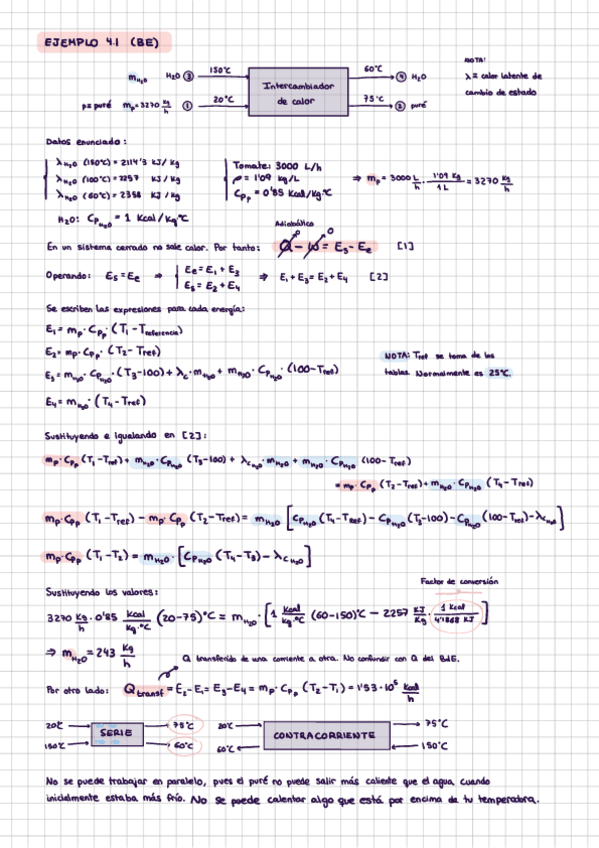 EJEMPLO 4.1 (BE)
NOTA:
λ = calor latente de
cambio de estado
m_H₂O H₂O ③ 150°C
Intercambiador
de calor
60°C ④ H₂O
p = puré m_p = 3270 kg/h ① 20°C
75°C ② puré
Datos enunciado:
λ_H₂O (150°C) = 2114'3 KJ/kg
λ_H₂O (100°C) = 2257 KJ/kg
λ_H₂O (60°C) = 2358 KJ/kg
H₂O: Cp_H₂O = 1 Kcal/kg°C
Tomate: 3000 L/h
ρ = 1'09 kg/L
Cp_p = 0'85 Kcal/kg°C
⇒ m_p = 3000 L/h · 1'09 kg/1L = 3270 kg/h
Adiabático
En un sistema cerrado no sale calor. Por tanto: Q - W = Es - Ee [1]
0 0
Operando: Es = Ee ⇒ Ee = E₁ + E₃
Es = E₂ + E₄
⇒ E₁ + E₃ = E₂ + E₄ [2]
Se escriben las expresiones para cada energía:
E₁ = m_p · Cp_p · (T₁ - Treferencia)
E₂ = m_p · Cp_p · (T₂ - Tref)
E₃ = m_H₂O · Cp_H₂O · (T₃ - 100) + λc · m_H₂O + m_H₂O · Cp_H₂O · (100 - Tref)
E₄ = m_H₂O · (T₄ - Tref)
NOTA: Tref se toma de las
tablas. Normalmente es 25°C.
Sustituyendo e igualando en [2]:
m_p · Cp_p (T₁ - Tref) + m_H₂O · Cp_H₂O (T₃ - 100) + λc_H₂O · m_H₂O + m_H₂O · Cp_H₂O (100 - Tref)
= m_p · Cp_p (T₂ - Tref) + m_H₂O · Cp_H₂O (T₄ - Tref)
m_p · Cp_p (T₁ - Tref) - m_p · Cp_p (T₂ - Tref) = m_H₂O [Cp_H₂O (T₄ - Tref) - Cp_H₂O (T₃ - 100) - Cp_H₂O (100 - Tref) - λc_H₂O]
m_p · Cp_p (T₁ - T₂) = m_H₂O · [Cp_H₂O (T₄ - T₃) - λc_H₂O]
Factor de conversión
Sustituyendo los valores:
3270 kg/h · 0'85 Kcal/kg·°C (20 - 75)°C = m_H₂O · [1 Kcal/kg·°C (60 - 150)°C - 2257 KJ/kg · 1 Kcal/4'1868 KJ]
⇒ m_H₂O = 243 kg/h
Q transferido de una corriente a otra. No confundir con Q del BdE.
Por otro lado: Qtransf = E₂ - E₁ = E₃ - E₄ = m_p · Cp_p (T₂ - T₁) = 1'53 · 10⁵ Kcal/h
20°C SERIE 75°C
150°C 60°C
20°C CONTRACORRIENTE 75°C
60°C 150°C
No se puede trabajar en paralelo, pues el puré no puede salir más caliente que el agua, cuando
inicialmente estaba más frío. No se puede calentar algo que está por encima de tu temperatura.